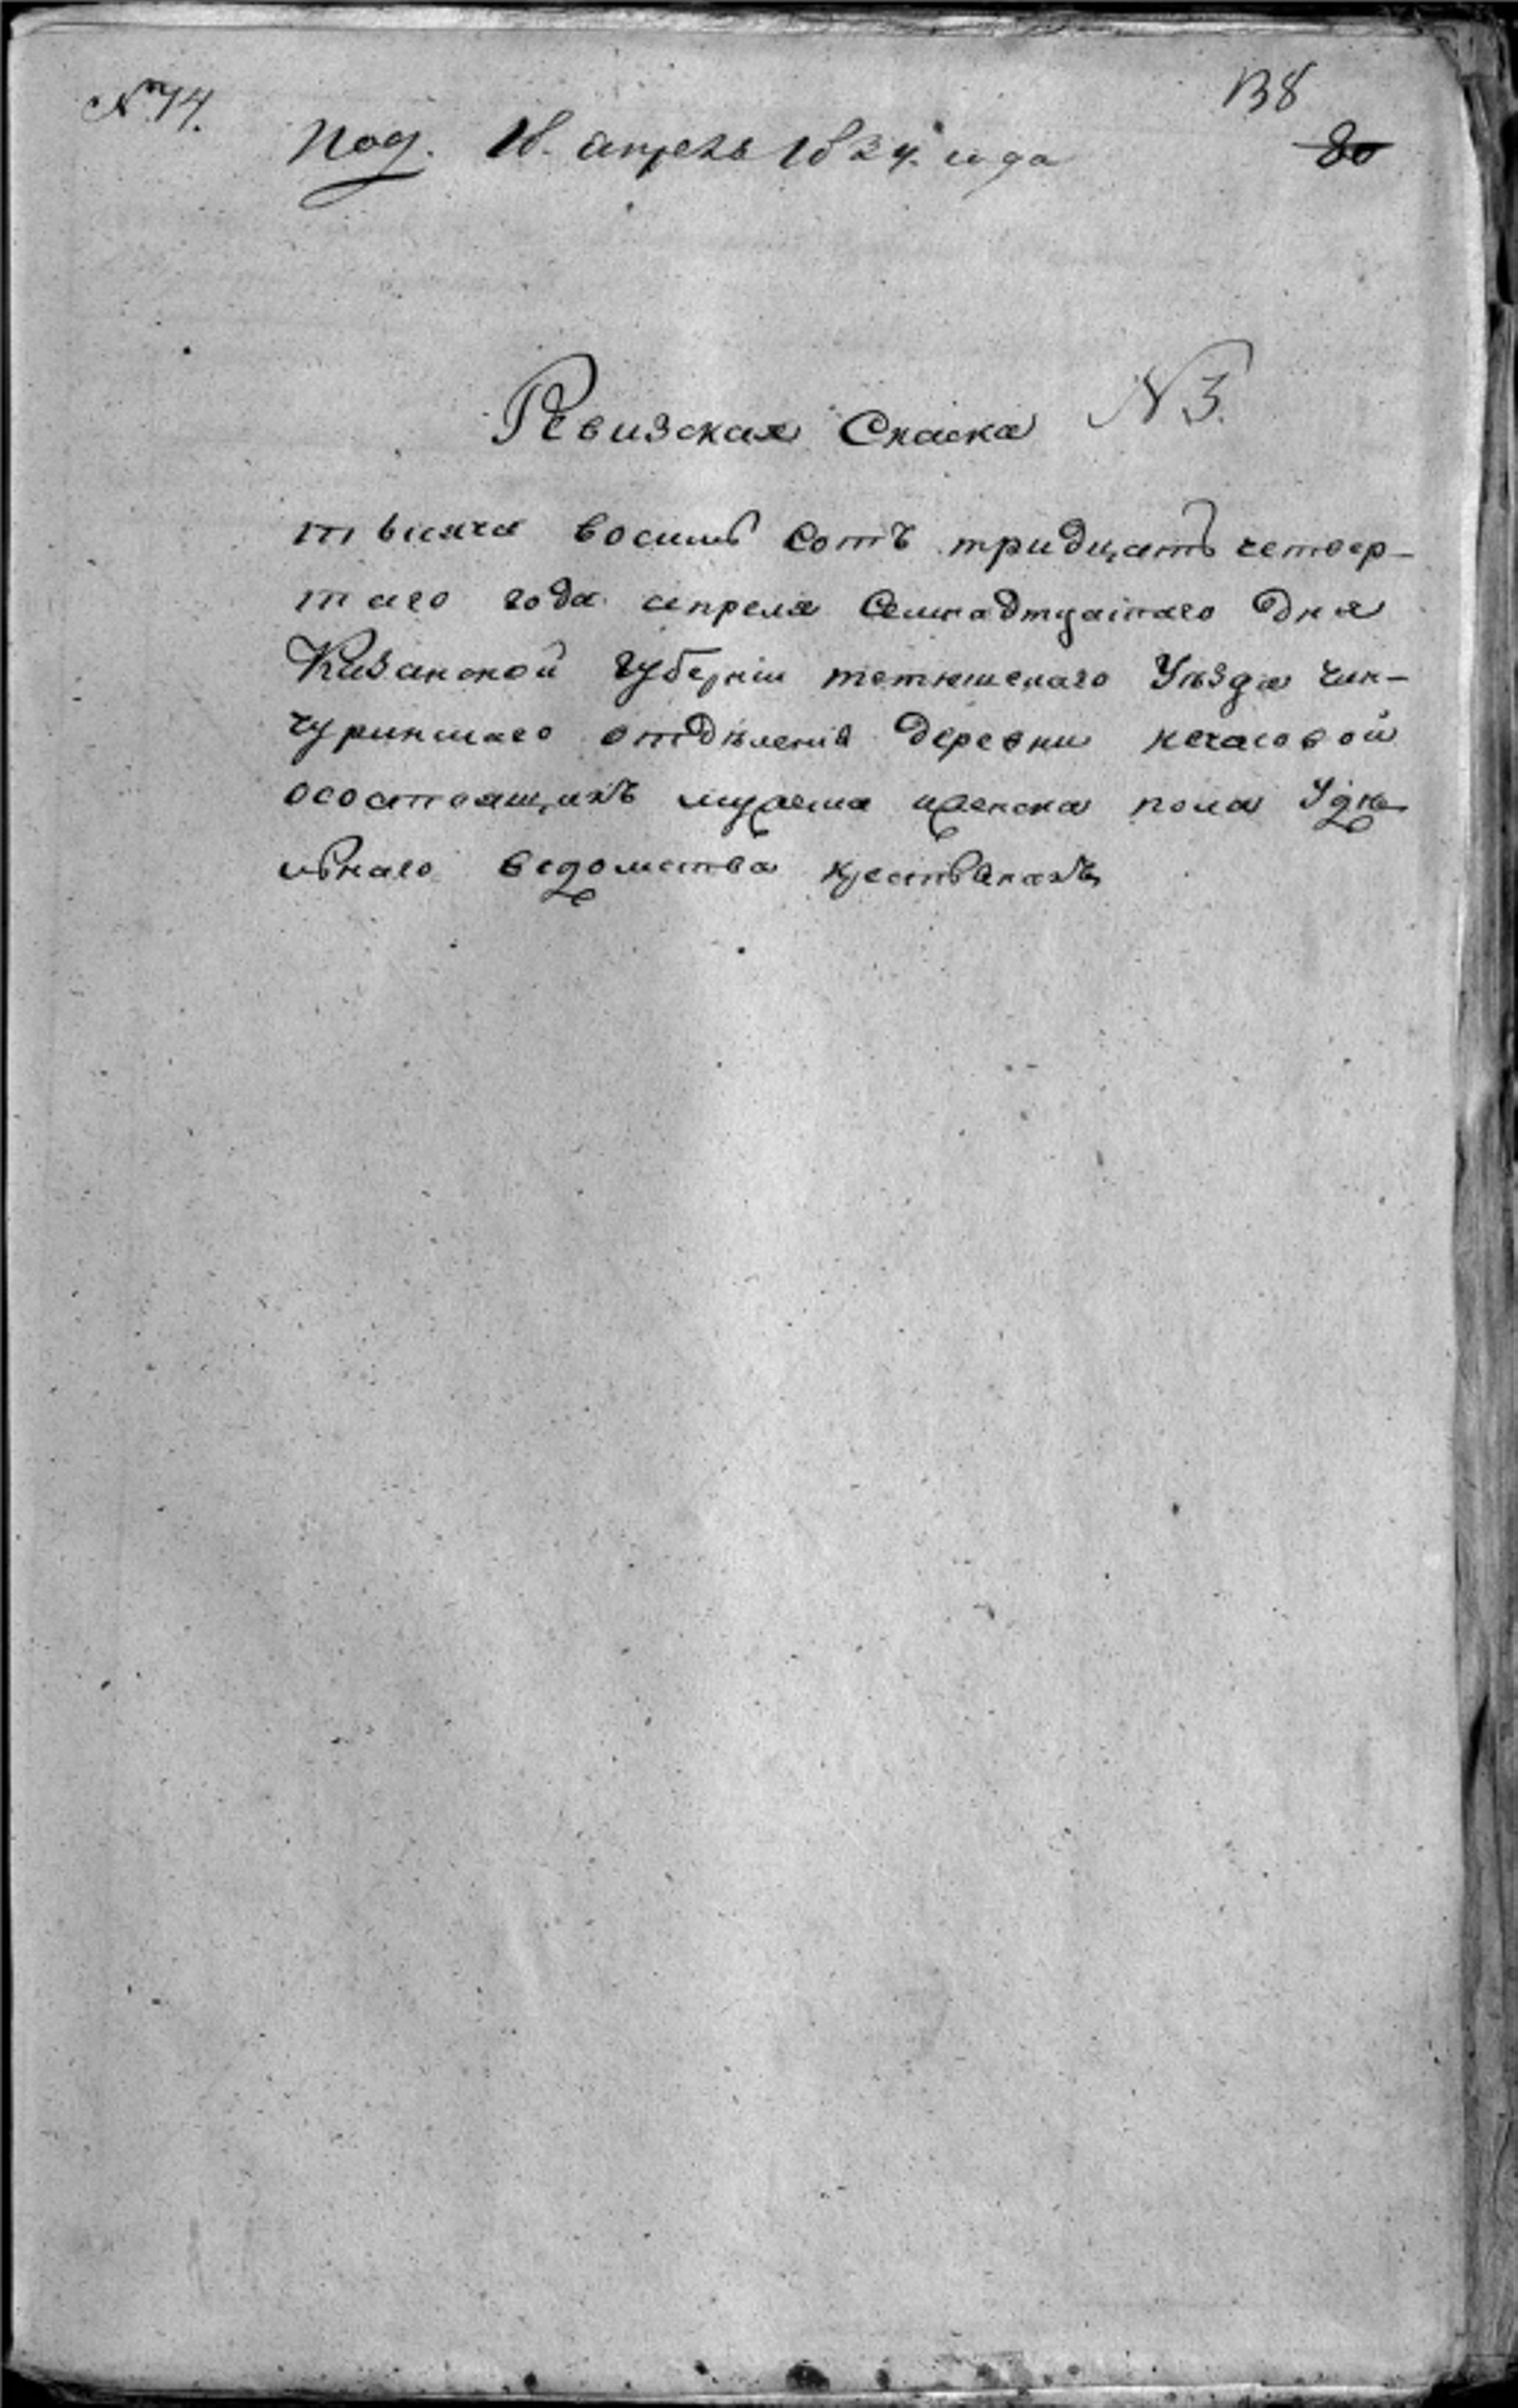 № 74.
138
Под. 18. апреля 1834. года
80
Ревизская Скаска № 3.
тысяча восимь сотъ тридцать четвер-
таго года апреля семнадтцатаго дня
Казанской губерніи тетюшскаго Уѣзда чин-
чуринскаго отдѣленія деревни нечасовой
осостоящихъ мужеска иженска пола Удѣ-
льнаго ведомства крестьянахъ